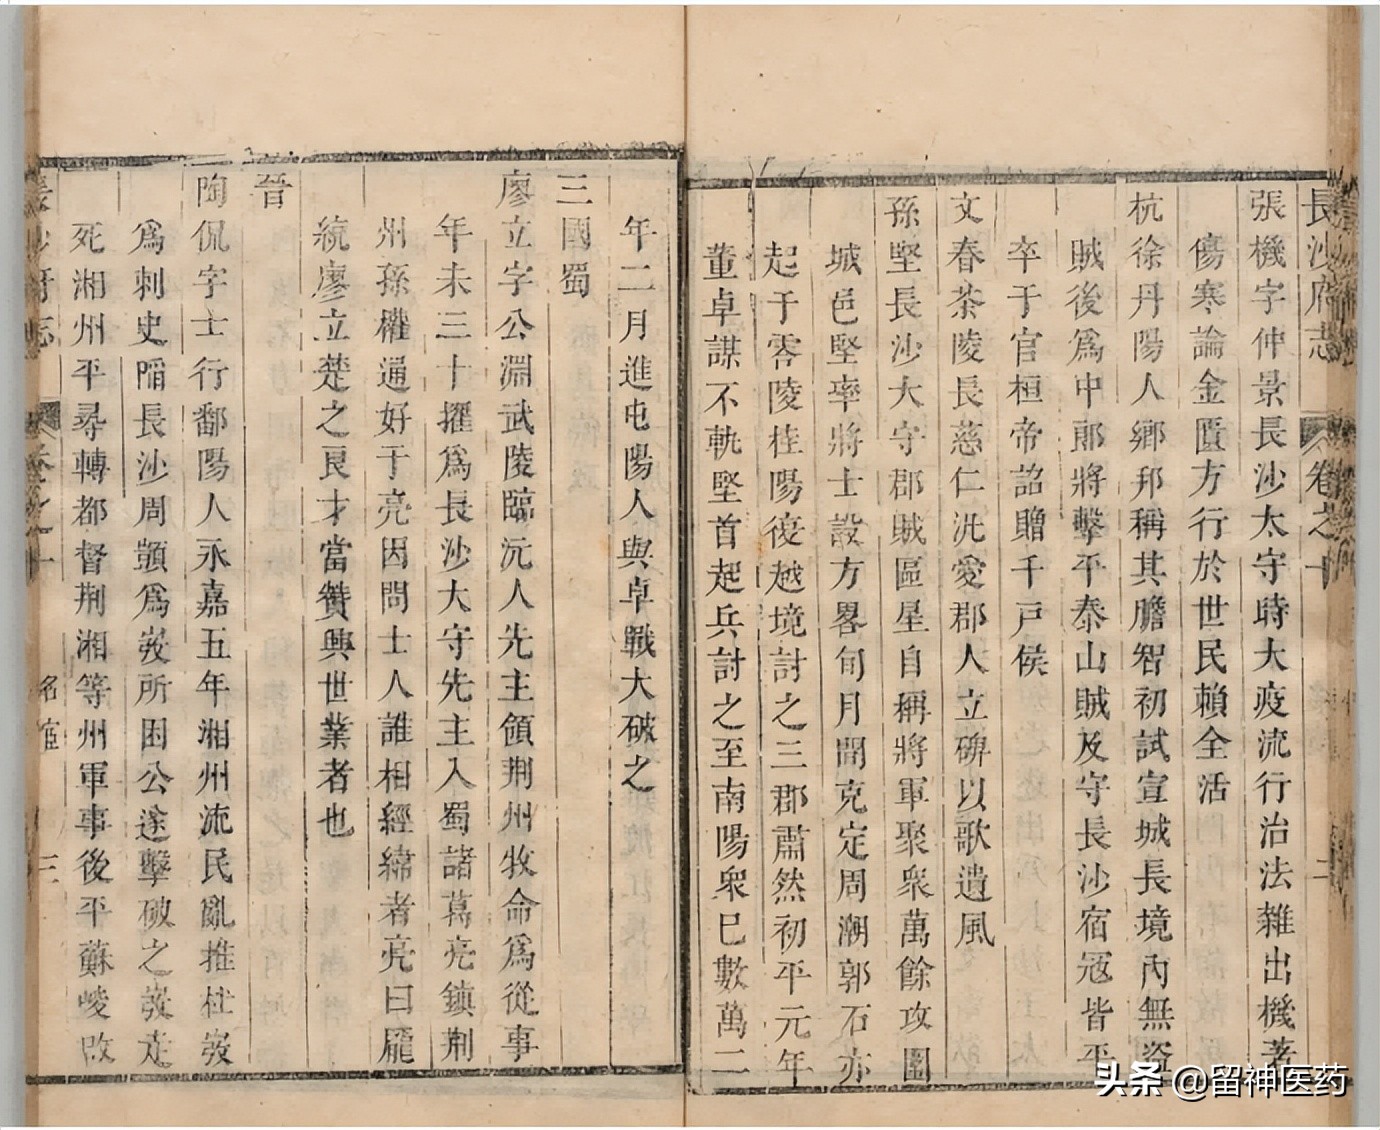 長沙府志 卷之十 二
張機字仲景長沙太守時大疫流行治法雜出機著
傷寒論金匱方行於世民賴全活
杭徐丹陽人鄉邦稱其膽智初試宣城長境內無盜
賊後爲中郎將擊平泰山賊及守長沙宿冦皆平
卒于官桓帝詔贈千戸侯
文春茶陵長慈仁汎愛郡人立碑以歌遺風
孫堅長沙大守郡賊區星自稱將軍聚衆萬餘攻圍
城邑堅率將士設方畧旬月間克定周潮郭石亦
起于零陵桂陽復越境討之三郡肅然初平元年
董卓謀不軌堅首起兵討之至南陽衆巳數萬二
年二月進屯陽人與卓戰大破之
三國蜀
廖立字公淵武陵臨沅人先主領荆州牧命爲從事
年未三十擢爲長沙大守先主入蜀諸葛亮鎮荆
州孫權通好于亮因問士人誰相經緯者亮曰龎
統廖立楚之良才當贊興世業者也
晉
陶侃字士行鄱陽人永嘉五年湘州流民亂推杜弢
爲刺史陷長沙周顗爲弢所困公逆擊破之弢走
死湘州平尋轉都督荆湘等州軍事後平蘇峻改
長沙府志 卷之十 名宦 三
头条 @留神医药